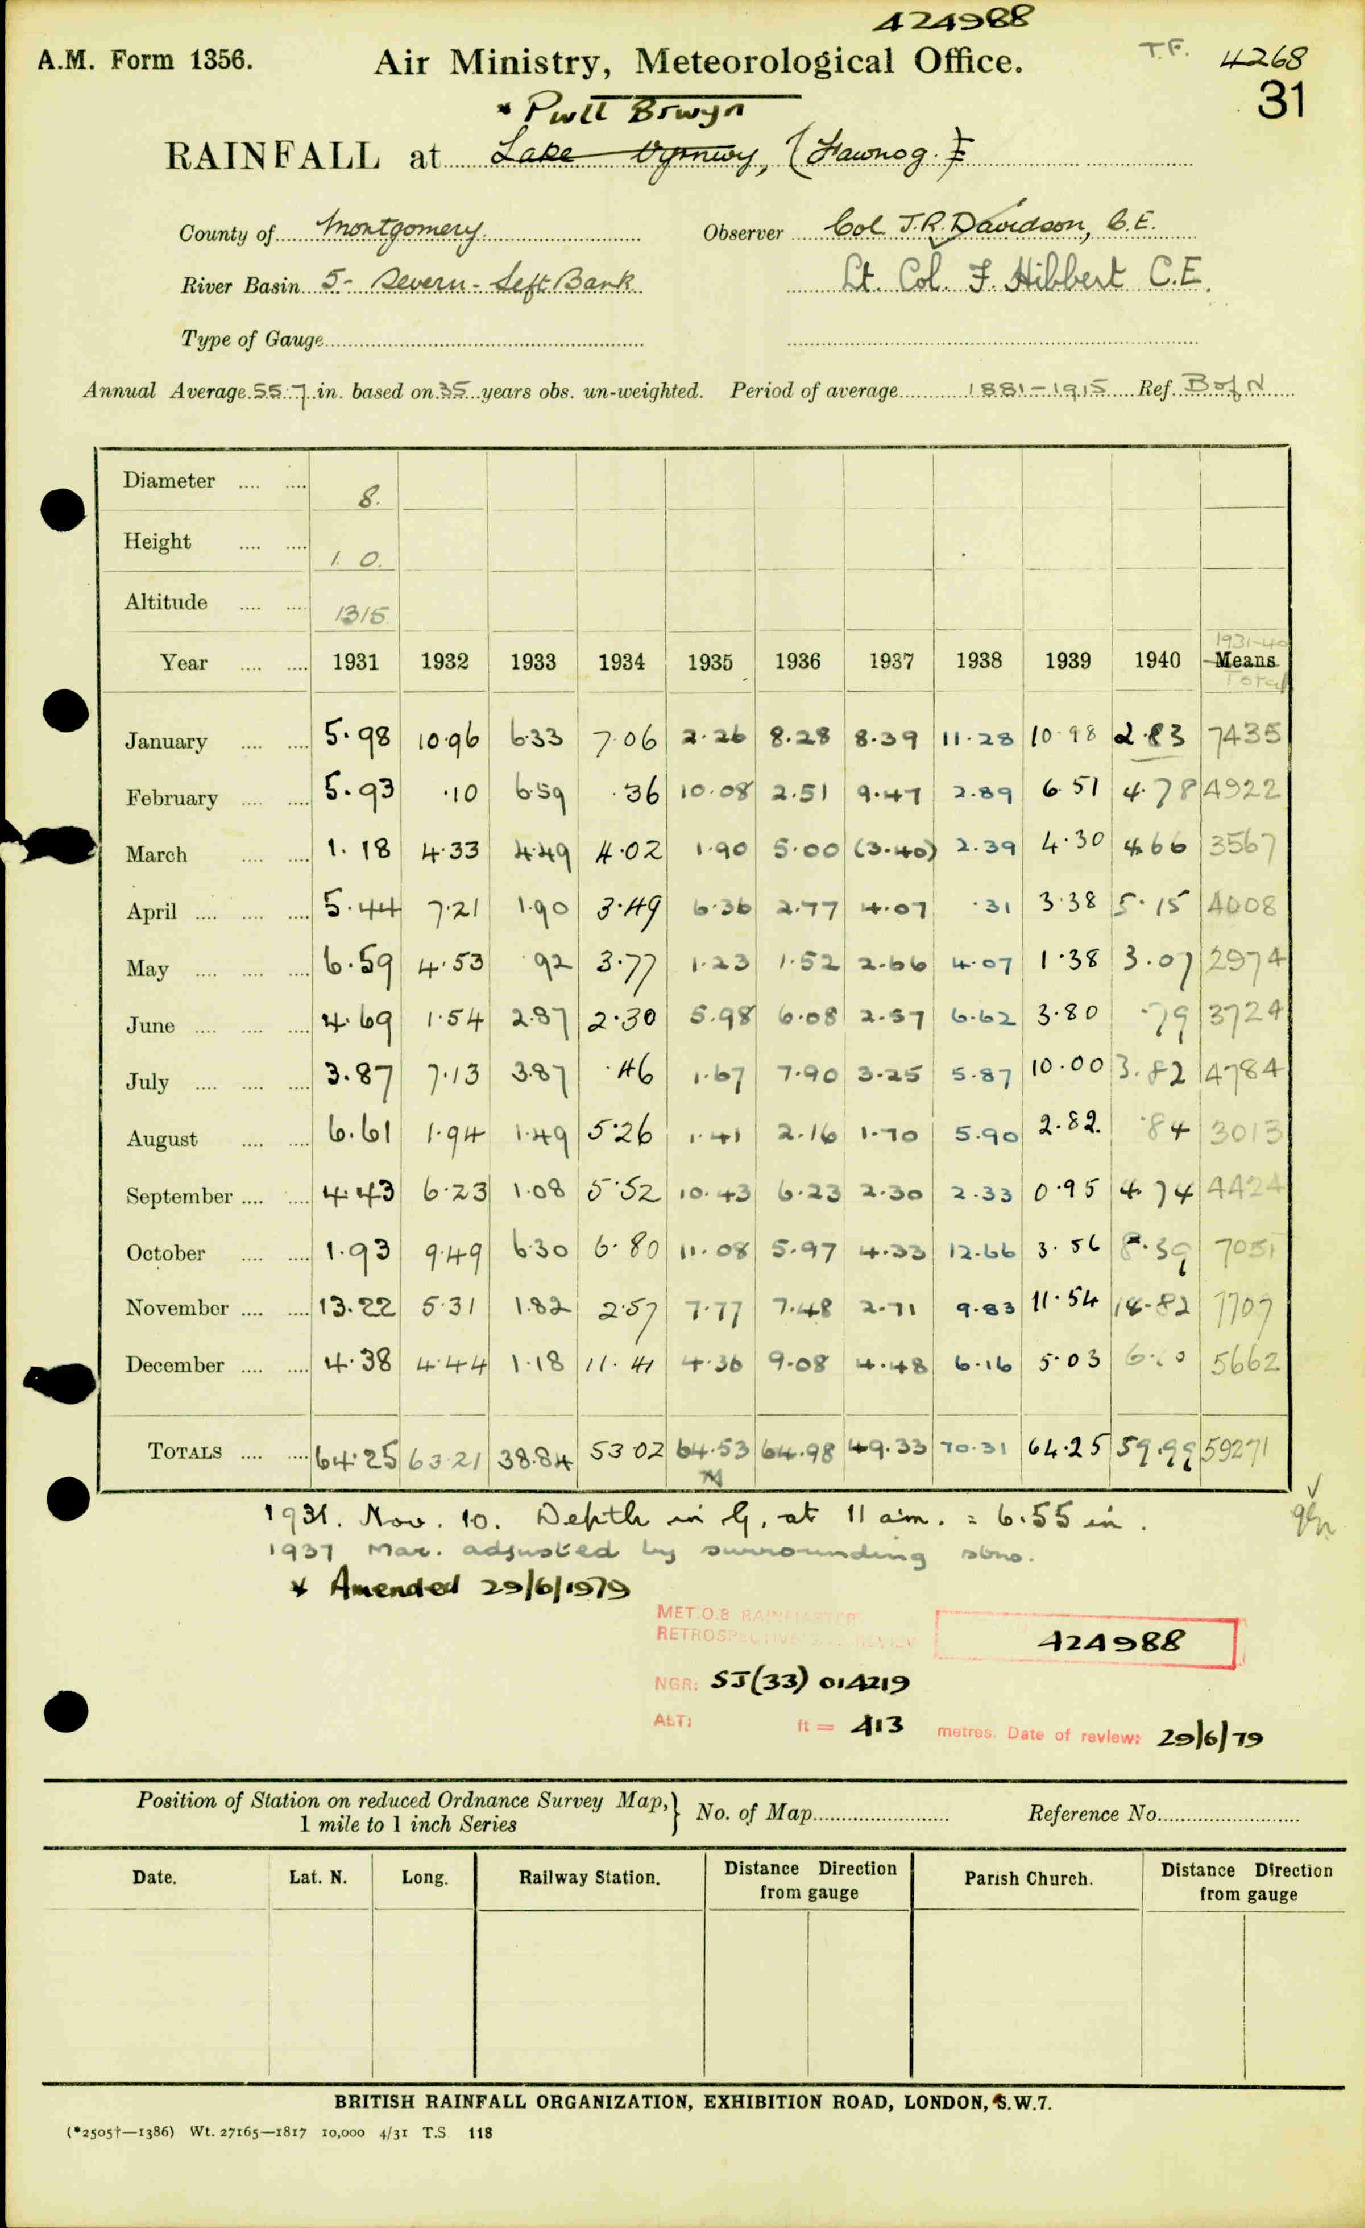 424988
A.M. Form 1356. Air Ministry, Meteorological Office. T.F. 4268
31
* Pwll Brwyn
RAINFALL at Lake Vyrnwy, (Fawnog.)
County of Montgomery. Observer Col J.R. Davidson, C.E.
River Basin 5- Severn - Left Bank Lt. Col. F. Hibbert C.E.
Type of Gauge
Annual Average 55.7 in. based on 35 years obs. un-weighted. Period of average 1881-1915 Ref. B of N
Diameter 8.
Height 1. 0.
Altitude 1315
1931-40
Year 1931 1932 1933 1934 1935 1936 1937 1938 1939 1940 Means
Total
January 5.98 10.96 6.33 7.06 2.26 8.28 8.39 11.28 10.98 2.83 7435
February 5.93 .10 6.59 .36 10.08 2.51 9.47 2.89 6.51 4.78 4922
March 1.18 4.33 4.49 4.02 1.90 5.00 (3.40) 2.39 4.30 4.66 3567
April 5.44 7.21 1.90 3.49 6.36 2.77 4.07 .31 3.38 5.15 4008
May 6.59 4.53 .92 3.77 1.23 1.52 2.66 4.07 1.38 3.07 2974
June 4.69 1.54 2.87 2.30 5.98 6.08 2.57 6.62 3.80 .79 3724
July 3.87 7.13 3.87 .46 1.67 7.90 3.25 5.87 10.00 3.82 4784
August 6.61 1.94 1.49 5.26 1.41 2.16 1.70 5.90 2.82. .84 3013
September 4.43 6.23 1.08 5.52 10.43 6.23 2.30 2.33 0.95 4.74 4424
October 1.93 9.49 6.30 6.80 11.08 5.97 4.33 12.66 3.56 8.39 7051
November 13.22 5.31 1.82 2.57 7.77 7.48 2.71 9.83 11.54 14.82 7707
December 4.38 4.44 1.18 11.41 4.36 9.08 4.48 6.16 5.03 6.10 5662
TOTALS 64.25 63.21 38.84 53.02 64.53 64.98 49.33 70.31 64.25 59.99 59271
1931. Nov. 10. Depth in G. at 11 a.m. = 6.55 in.
1937 Mar. adjusted by surrounding stns.
* Amended 29/6/1979
MET.O.8 RAINMASTER
RETROSPECTIVE REVIEW 424988
NGR: SJ(33) 014219
ALT: ft = 413 metres. Date of review: 29/6/79
Position of Station on reduced Ordnance Survey Map,} No. of Map Reference No.
1 mile to 1 inch Series
Date. Lat. N. Long. Railway Station. Distance Direction from gauge Parish Church. Distance Direction from gauge
BRITISH RAINFALL ORGANIZATION, EXHIBITION ROAD, LONDON, S.W.7.
(*2505†—1386) Wt. 27165—1817 10,000 4/31 T.S 118